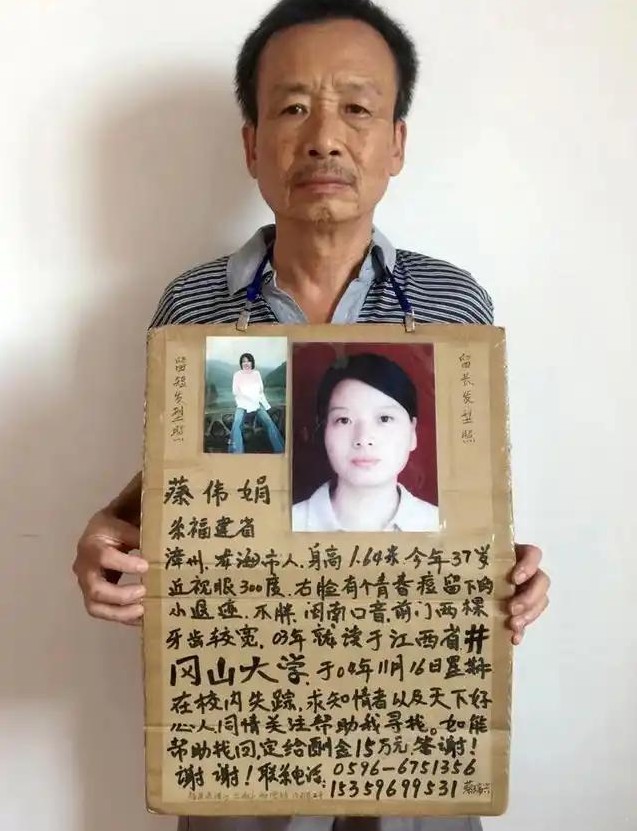 留短发型照
留长发型照
蔡伟娟
系福建省
漳州.龙海市人.身高1.64米.今年37岁
近视眼300度.右脸有个青春痘留下的
小退迹.不胖.闽南口音.前门两棵
牙齿较宽.03年就读于江西省井
冈山大学.于04年11月16日星期
在校内失踪.求知情者以及天下好
心人.同情关注帮助我寻找。如能
帮助找回定给酬金15万元答谢!
谢谢!联系电话:0596-6751356
15359699531